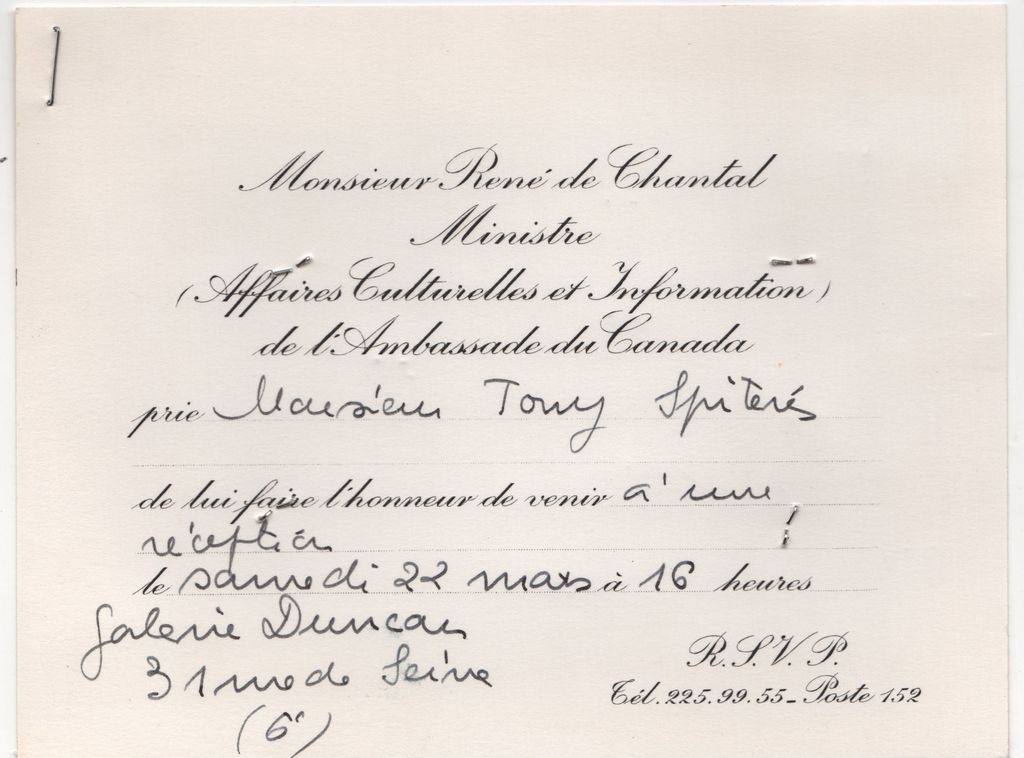 Monsieur René de Chantal
Ministre
(Affaires Culturelles et Information)
de l'Ambassade du Canada
prie Monsieur Tony Spiteris
de lui faire l'honneur de venir à une
réception
le samedi 22 mars à 16 heures
Galerie Duncan
31 rue de Seine
(6e)
R.S.V.P.
Tél. 225.99.55 - Poste 152